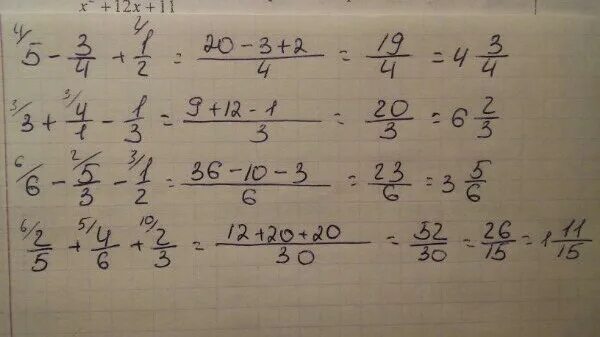 x² + 12x + 11
⁴/5 - 3/4 + ²/1/2 = (20 - 3 + 2)/4 = 19/4 = 4 3/4
³/3 + ³/4/1 - 1/3 = (9 + 12 - 1)/3 = 20/3 = 6 2/3
⁶/6 - ²/5/3 - ³/1/2 = (36 - 10 - 3)/6 = 23/6 = 3 5/6
⁶/2/5 + ⁵/4/6 + ¹⁰/2/3 = (12 + 20 + 20)/30 = 52/30 = 26/15 = 1 11/15